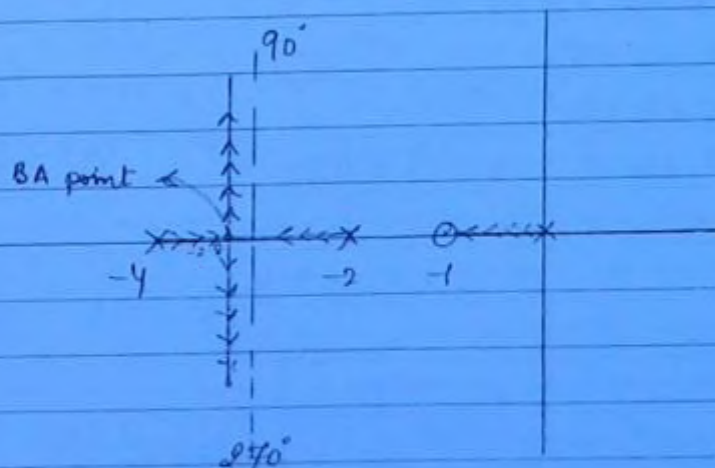 90°
BA point
-4 -2 -1
270°